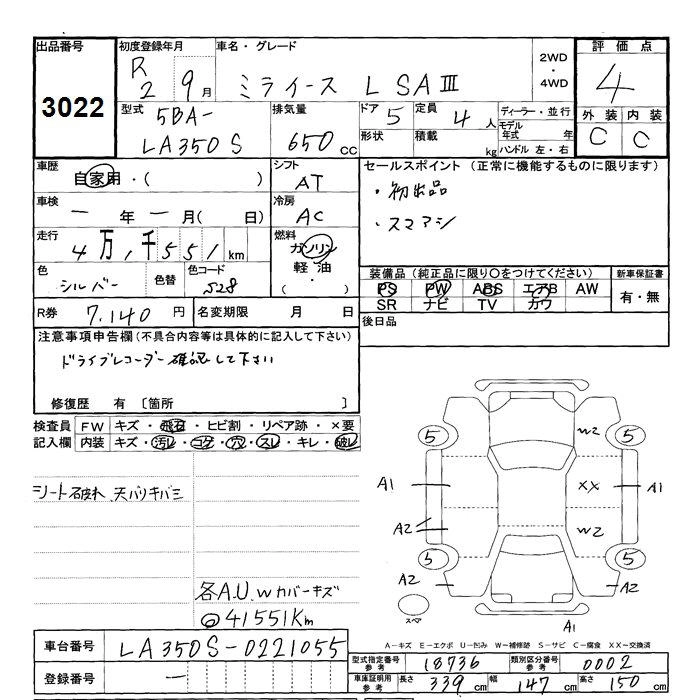 出品番号 初度登録年月 車名・グレード 2WD・4WD 評価点
3022 R2 9月 ミライース L SAⅢ 4
型式 5BA-LA350S 排気量 650cc ドア 5 定員 4人 ディーラー・並行 外装 内装
形状 積載 kg モデル年式 年 C C
ハンドル 左・右
車歴 自家用・( ) シフト AT セールスポイント(正常に機能するものに限ります)
車検 一年一月( 日) 冷房 AC ・初出品
走行 4万1千551km 燃料 ガソリン ・スマアシ
軽油
・( )
色 シルバー 色替 色コード S28 装備品(純正品に限り○をつけてください) 新車保証書
PS PW ABS エアB AW 有・無
SR ナビ TV カワ
R券 7,140円 名変期限 月 日 後日品
注意事項申告欄(不具合内容等は具体的に記入して下さい)
ドライブレコーダー確認して下さい
修復歴 有 〔箇所 〕
検査員 FW キズ・飛石・ヒビ割・リペア跡・×要
記入欄 内装 キズ・汚レ・コゲ・穴・スレ・キレ・破レ
シート破れ 天バリキバミ
各A.U.wカバーキズ
@41551Km
5 W2 5
A1 XX A1
A2 W2
5 5
A2 A2
スペア A1
A-キズ E-エクボ U-凹み W-補修跡 S-サビ C-腐食 XX-交換済
車台番号 LA350S-0221055
型式指定番号 参考 18736 類別区分番号 参考 0002
登録番号 一
車庫証明用 参考 長さ 339cm 幅 147cm 高さ 150cm